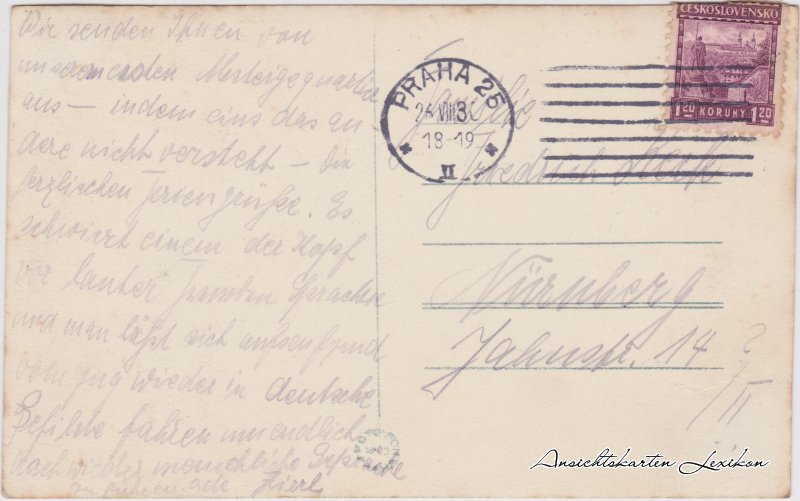 Wir senden Ihnen von
unserem
aus – indem eins das an-
dere nicht versteht – die
herzlichsten Feriengrüße. Es
schwirrt einem der Kopf
vor lauter fremden Sprachen
und man läßt sich
vom Zug wieder in deutsche
Gefilde fahren um endlich
doch wieder menschliche Gespräche
zu
ČESKOSLOVENSKO
1.20 KORUNY 1.20
PRAHA 25
26.VIII.30
18-19
II
Familie
Friedrich
Nürnberg
Jahnstr. 14
/II
Ansichtskarten Lexikon